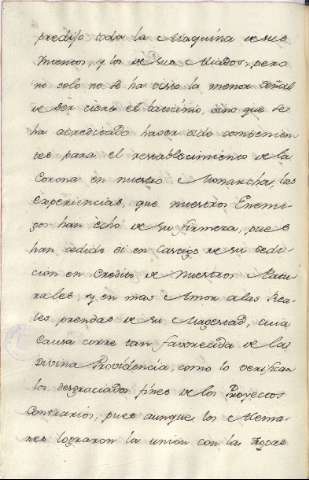 predijo toda la Maquina de sus
menos, y los de sus Aliados, pero
no solo no se ha visto la menor señal
de ser cierto el Vaticinio, sino que se
ha acreditado haver sido convenien
tes para el restablecimiento de la
Corona en nuestro Monarcha, las
experiencias, que nuestros Enemi
gos han echo de su firmeza, pues
han cedido en
cion en Credito de Nuestros Natu
rales, y en mas Amor a las Rea
les prendas de su Magestad, cuia
Causa corre tan favorecida de la
Divina Providencia, como lo verifican
los desgraciados fines de los Proyectos
Contrarios, pues aunque los Alema
nes lograron la union con la